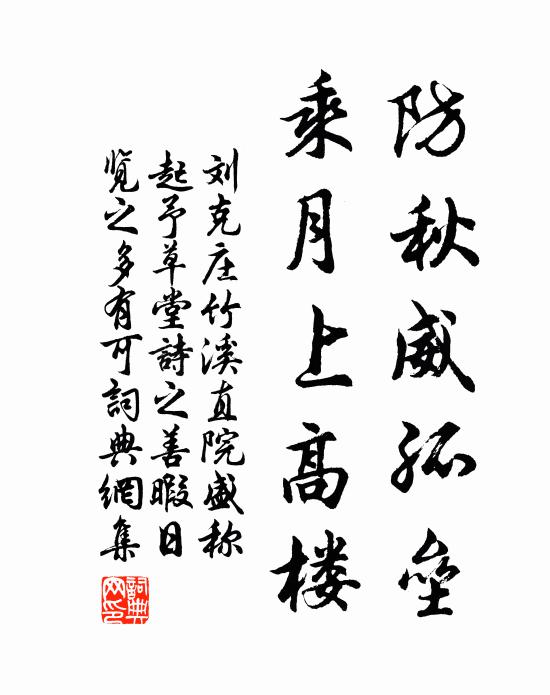 防秋威孤垒
乘月上高楼
刘克庄竹溪直院盛称
起予草堂詩之善暇日
览之多有可詞典網集
詞典
网印